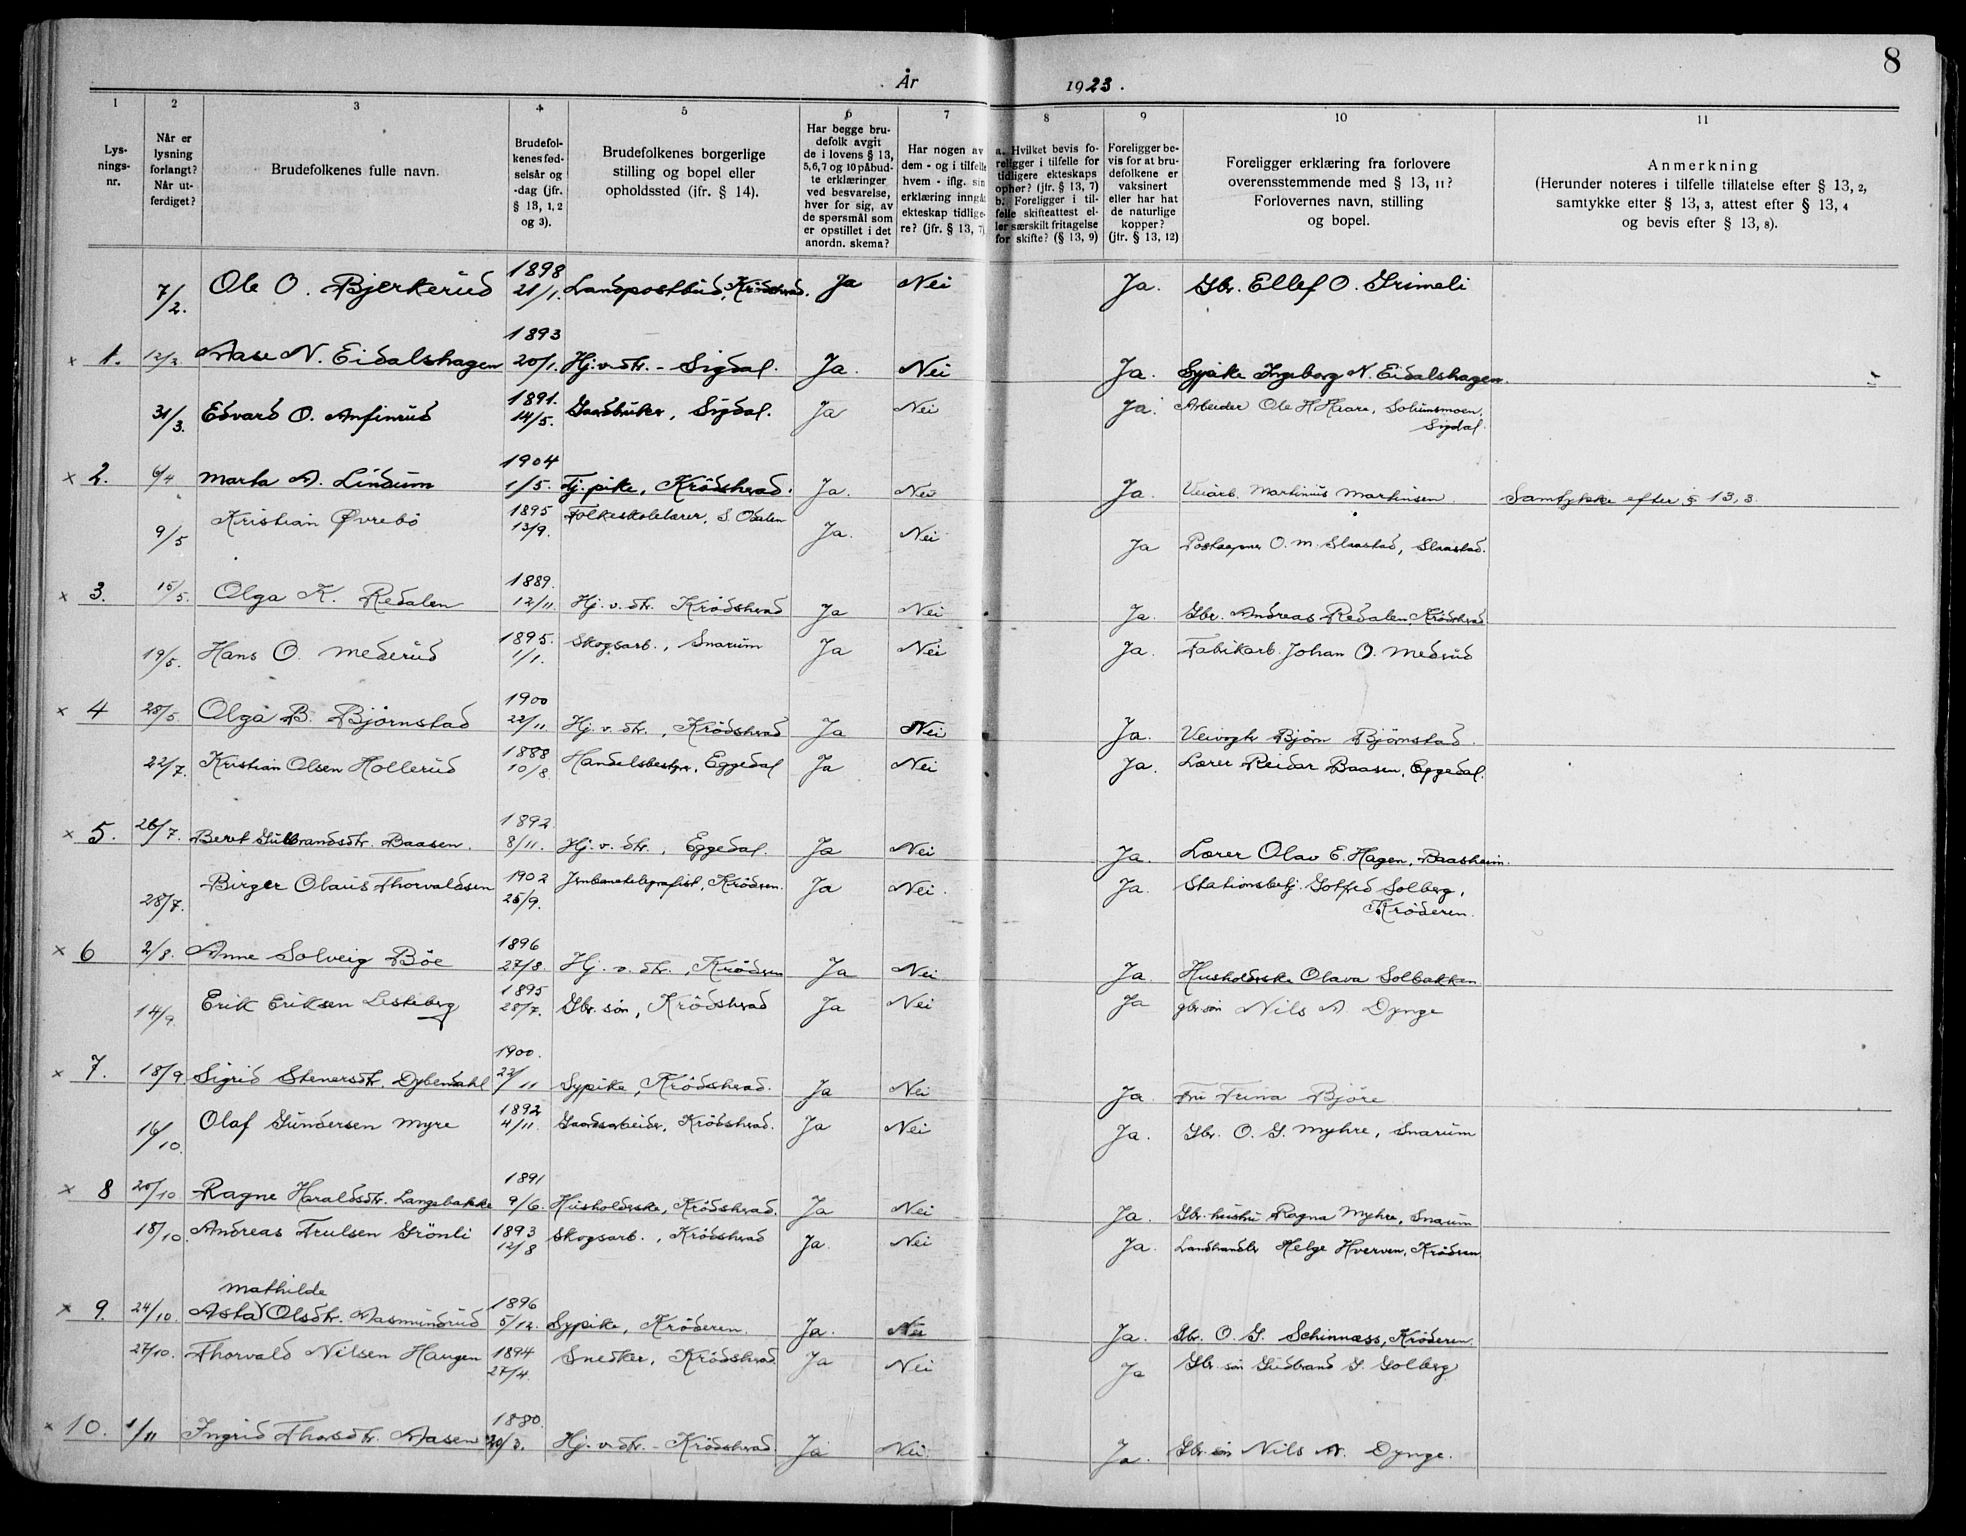 8
År 1923.
1 2 3 4 5 6 7 8 9 10 11
Lys-
nings-
nr.
Når er
lysning
forlangt?
Når ut-
ferdiget?
Brudefolkenes fulle navn.
Brudefol-
kenes fød-
selsår og
-dag (jfr.
§ 13, 1, 2
og 3).
Brudefolkenes borgerlige
stilling og bopel eller
opholdssted (ifr. § 14).
Har begge bru-
defolk avgit
de i lovens § 13,
5,6,7 og 10 påbud-
te erklæringer
ved besvarelse,
hver for sig, av
de spørsmål som
er opstillet i det
anordn. skema?
Har nogen av
dem - og i tilfelle
hvem - iflg. sin
erklæring inngåt
ekteskap tidlige-
re? (jfr. § 13, 7)
a. Hvilket bevis fo-
religger i tilfelle for
tidligere ekteskaps
ophør? (jfr. § 13, 7)
b. Foreligger i til-
felle skifteattest el-
ler særskilt fritagelse
for skifte? (§ 13, 9)
Foreligger be-
vis for at bru-
defolkene er
vaksinert
eller har hat
de naturlige
kopper?
(jfr. § 13, 12)
Foreligger erklæring fra forlovere
overensstemmende med § 13, 11?
Forlovernes navn, stilling
og bopel.
Anmerkning
(Herunder noteres i tilfelle tillatelse efter § 13, 2,
samtykke etter § 13, 3, attest efter § 13, 4
og bevis efter § 13, 8).
7/2. Ole O. Bjerkerud 1898 21/1. Landpostbud, Krödsherad. Ja Nei Ja. Gbr. Ellef O. Grimeli
x 1. 12/2 Aase N. Eidalshagen 1893 20/1. Hj.v.dtr. - Sigdal. Ja. Nei Ja. Sypike Ingeborg N. Eidalshagen.
31/3. Edvard O. Anfinrud 1891. 14/5. Gaardbruker, Sigdal. Ja Nei Ja. Arbeider Ole H Haare, Solumsmoen,
Sigdal.
x 2. 6/4 Marta A. Lindum 1904 1/5. Tj. pike, Krödsherad. Ja. Nei Ja. Veiarb. Martinius Martinsen. Samtykke efter § 13,3.
9/5 Kristian Øvrebö 1895 13/9. Folkeskolelærer, S. Odalen Ja. Nei Ja Postaapner O. M. Slaastad, Slaastad.
x 3. 15/5. Olga K. Redalen 1889. 12/11. Hj. v. dtr. Krödsherad Ja Nei Ja. Gbr. Andreas Redalen, Krödsherad
19/5. Hans O. Mederud 1895. 1/1. Skogsarb., Snarum Ja Nei Ja. Fabrikarb. Johan O. Medrud
x 4 28/5. Olga B. Björnstad 1900 22/11. Hj. v. dtr., Krödsherad Ja Nei Ja. Veivogter Björn Björnstad.
22/7. Kristian Olsen Hollerud 1888 10/8. Handelsbestyr., Eggedal Ja Nei Ja. Lærer Reidar Baasen, Eggedal.
x 5. 26/7. Beret Gulbrandsdtr. Baasen. 1892. 8/11. Hj. v. dtr., Eggedal. Ja Nei Ja. Lærer Olav E. Hagen, Baasheim.
28/7. Birger Olaus Thorvaldsen 1902 25/9. Jernbanetelegrafist, Kröderen. Ja Nei. Ja. Stationsbetj. Gotfred Solberg,
Kröderen.
x 6 2/8. Anne Solveig Böe 1896 27/8. Hj. v. dtr., Kröderen Ja Nei Ja. Husholderske Olava Solbakken
14/9. Erik Eriksen Leskeberg 1895 28/7. Gbr. sön, Krödsherad Ja Nei Ja gbr.sön Nils A. Dynge
x 7. 18/9 Sigrid Stenersdtr. Dybendahl 1900. 22/11 Sypike, Krödsherad. Ja Nei Ja. Fru Trina Björe
16/10. Olaf Gundersen Myre 1892 4/11. Gaardsarbeider, Krödsherad. Ja Nei Ja. Gbr. O. G. Myhre, Snarum
x 8 20/10 Ragne Haraldsdtr. Langebakke 1891 9/6. Husholderske, Krödsherad. Ja Nei Ja. Gbr. hustru Ragna Myhre, Snarum
18/10. Andreas Trulsen Grönli 1893 12/8 Skogsarb., Krödsherad Ja. Nei Ja. Landhandler Helge Hverven, Kröderen.
Mathilde
x 9. 24/10. Asta Olsdtr. Aasmundrud 1896 5/12. Sypike, Kröderen. Ja. Nei Ja. Gbr. O. G. Schinnæss, Kröderen.
27/10. Thorvald Nilsen Haugen 1894 27/4. Snedker, Krödsherad Ja Nei Ja Gbr. sön Gudbrand G. Golberg
x 10. 1/11 Ingrid Thorsdtr. Aasen 1880. 20/3. Hj. v. dtr. - Krödsherad. Ja Nei. Ja. Gbr. sön Nils A. Dynge.